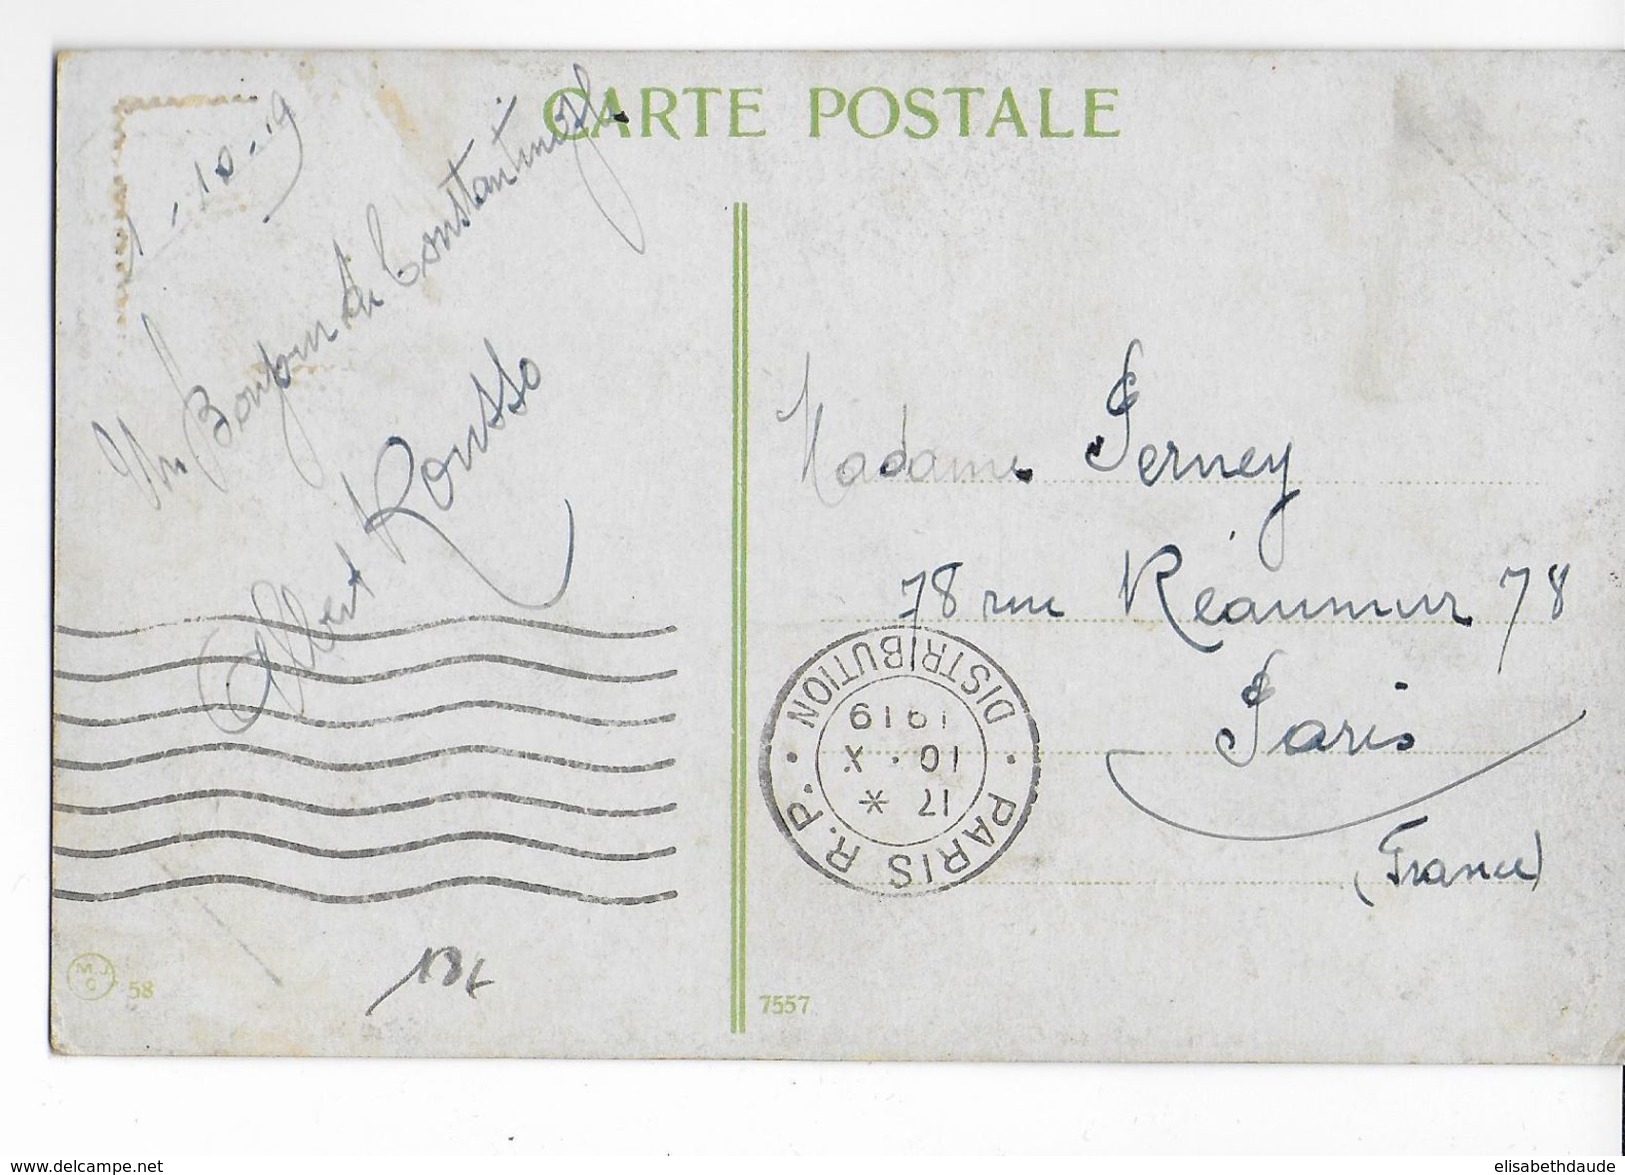 CARTE POSTALE
1-10-19
Un Bonjour de Constantinople
Albert Rousso
Madame Perney
78 rue Réaumur 78
Paris
(France)
PARIS R.P. • DISTRIBUTION •
17 *
10 • X
1919
M J C
58
7557
www.delcampe.net
elisabethdaude